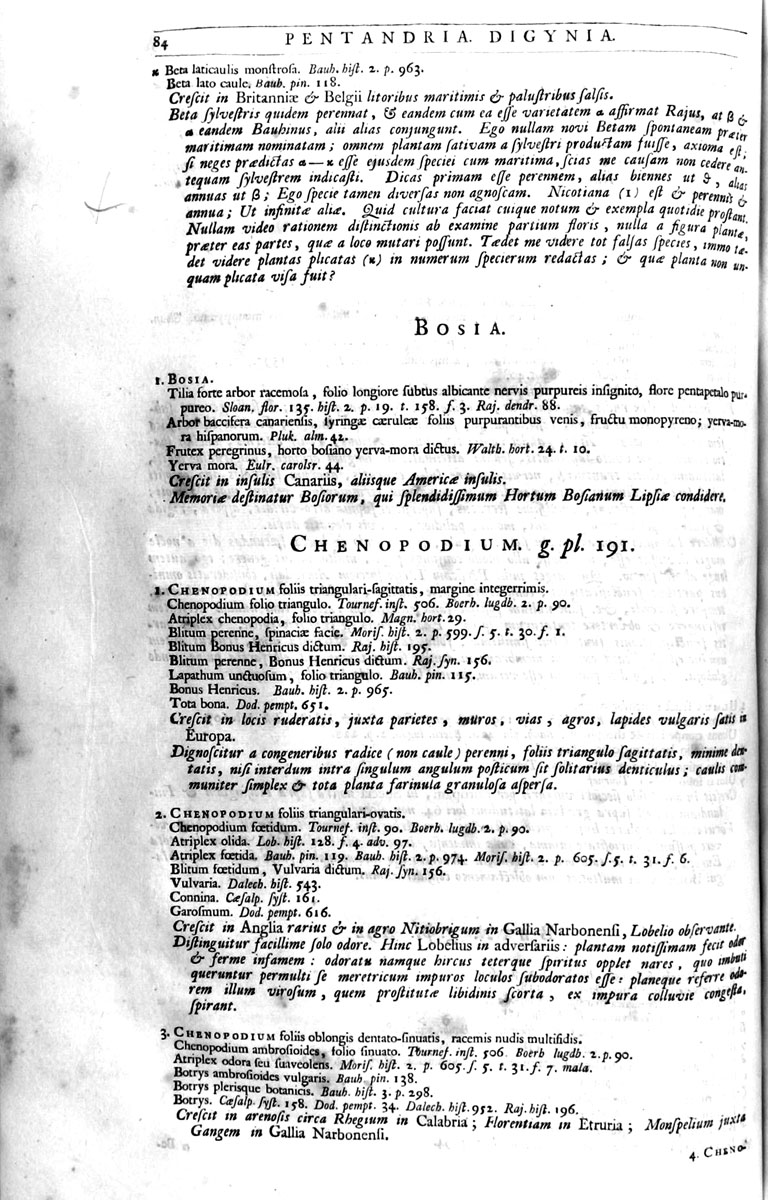 84 PENTANDRIA. DIGYNIA.
ϰ Beta laticaulis monſtroſa. Bauh. hiſt. 2. p. 963.
Beta lato caule. Bauh. pin. 118.
Creſcit in Britanniæ & Belgii litoribus maritimis & paluſtribus ſalſis.
Beta ſylveſtris quidem perennat, & eandem cum ea eſſe varietatem α affirmat Rajus, at β &
α eandem Bauhinus, alii alias conjungunt. Ego nullam novi Betam ſpontaneam præter
maritimam nominatam; omnem plantam ſativam a ſylveſtri productam fuiſſe, axioma eſt;
ſi neges prædictas α—ϰ eſſe ejuſdem ſpeciei cum maritima, ſcias me cauſam non cedere an-
tequam ſylveſtrem indicaſti. Dicas primam eſſe perennem, alias biennes ut ϑ, alias
annuas ut β; Ego ſpecie tamen diverſas non agnoſcam. Nicotiana (1) eſt & perennis &
annua; Ut infinitæ aliæ. Quid cultura faciat cuique notum & exempla quotidie proſtant.
Nullam video rationem diſtinctionis ab examine partium floris, nulla a figura plantæ,
præter eas partes, quæ a loco mutari poſſunt. Tædet me videre tot falſas ſpecies, immo tæ-
det videre plantas plicatas (ϰ) in numerum ſpecierum redactas; & quæ planta non un-
quam plicata viſa fuit?
BOSIA.
1. BOSIA.
Tilia forte arbor racemoſa, folio longiore ſubtus albicante nervis purpureis inſignito, flore pentapetalo pur-
pureo. Sloan. flor. 135. hiſt. 2. p. 19. t. 158. f. 3. Raj. dendr. 88.
Arbor baccifera canarienſis, ſyringæ cæruleæ foliis purpurantibus venis, fructu monopyreno; yerva-mo-
ra hiſpanorum. Pluk. alm. 42.
Frutex peregrinus, horto boſiano yerva-mora dictus. Walth. hort. 24. t. 10.
Yerva mora. Eulr. carolsr. 44.
Creſcit in inſulis Canariis, aliisque Americæ inſulis.
Memoriæ deſtinatur Boſiorum, qui ſplendidiſſimum Hortum Boſianum Lipſiæ condidere.
CHENOPODIUM. g. pl. 191.
1. CHENOPODIUM foliis triangulari-ſagittatis, margine integerrimis.
Chenopodium folio triangulo. Tournef. inſt. 506. Boerh. lugdb. 2. p. 90.
Atriplex chenopodia, folio triangulo. Magn. hort. 29.
Blitum perenne, ſpinaciæ facie. Moriſ. hiſt. 2. p. 599. ſ. 5. t. 30. f. 1.
Blitum Bonus Henricus dictum. Raj. hiſt. 195.
Blitum perenne, Bonus Henricus dictum. Raj. ſyn. 156.
Lapathum unctuoſum, folio triangulo. Bauh. pin. 115.
Bonus Henricus. Bauh. hiſt. 2. p. 965.
Tota bona. Dod. pempt. 651.
Creſcit in locis ruderatis, juxta parietes, muros, vias, agros, lapides vulgaris ſatis in
Europa.
Dignoſcitur a congeneribus radice (non caule) perenni, foliis triangulo ſagittatis, minime den-
tatis, niſi interdum intra ſingulum angulum poſticum ſit ſolitarius denticulus; caulis com-
muniter ſimplex & tota planta farinula granuloſa aſperſa.
2. CHENOPODIUM foliis triangulari-ovatis.
Chenopodium fœtidum. Tournef. inſt. 90. Boerh. lugdb. 2. p. 90.
Atriplex olida. Lob. hiſt. 128. f. 4. adv. 97.
Atriplex fœtida. Bauh. pin. 119. Bauh. hiſt. 2. p. 974. Moriſ. hiſt. 2. p. 605. ſ. 5. t. 31. f. 6.
Blitum fœtidum, Vulvaria dictum. Raj. ſyn. 156.
Vulvaria. Dalech. hiſt. 543.
Connina. Cæſalp. ſyſt. 161.
Garoſmum. Dod. pempt. 616.
Creſcit in Anglia rarius & in agro Nitiobrigum in Gallia Narbonenſi, Lobelio obſervante.
Diſtinguitur facillime ſolo odore. Hinc Lobelius in adverſariis: plantam notiſſimam fecit odor
& ferme infamem: odoratu namque hircus teterque ſpiritus opplet nares, quo imbuti
queruntur permulti ſe meretricum impuros loculos ſubodoratos eſſe: planeque referre odo-
rem illum viroſum, quem proſtitutæ libidinis ſcorta, ex impura colluvie congeſta,
ſpirant.
3. CHENOPODIUM foliis oblongis dentato-ſinuatis, racemis nudis multifidis.
Chenopodium ambroſioides, folio ſinuato. Tournef. inſt. 506. Boerh lugdb. 2. p. 90.
Atriplex odora ſeu ſuaveolens. Moriſ. hiſt. 2. p. 605. ſ. 5. t. 31. f. 7. mala.
Botrys ambroſioides vulgaris. Bauh pin. 138.
Botrys plerisque botanicis. Bauh. hiſt. 3. p. 298.
Botrys. Cæſalp. ſyſt. 158. Dod. pempt. 34. Dalech. hiſt. 952. Raj. hiſt. 196.
Creſcit in arenoſis circa Rhegium in Calabria; Florentiam in Etruria; Monſpelium juxta
Gangem in Gallia Narbonenſi.
4. CHENO-